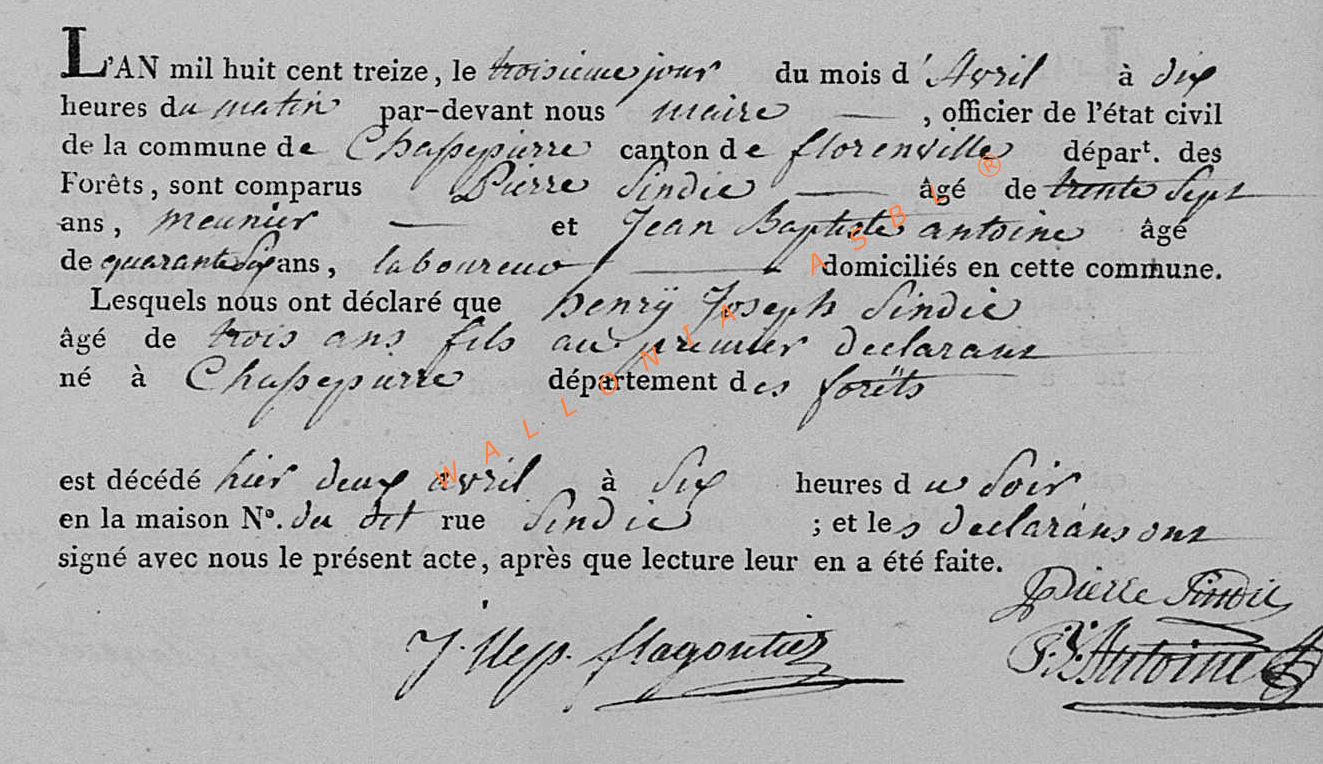 L'AN mil huit cent treize, le troisieme jour du mois d'Avril à dix
heures du matin par-devant nous maire — , officier de l'état civil
de la commune de Chassepierre canton de florenville départ. des
Forêts, sont comparus Pierre Sindic — âgé de trente Sept
ans, meunier — et Jean Baptiste antoine âgé
de quarante Six ans, laboureur — domiciliés en cette commune.
Lesquels nous ont déclaré que henrÿ Joseph Sindic
âgé de trois ans fils au premier declarant
né à Chassepierre département des forêts
est décédé hier deux avril à Six heures du Soir
en la maison Nº. du dit rue Sindic ; et les declarans ont
signé avec nous le présent acte, après que lecture leur en a été faite.
Pierre Sindic
J. Nep. flagontier
J. B. Antoine
WALLONIA ASBL ®